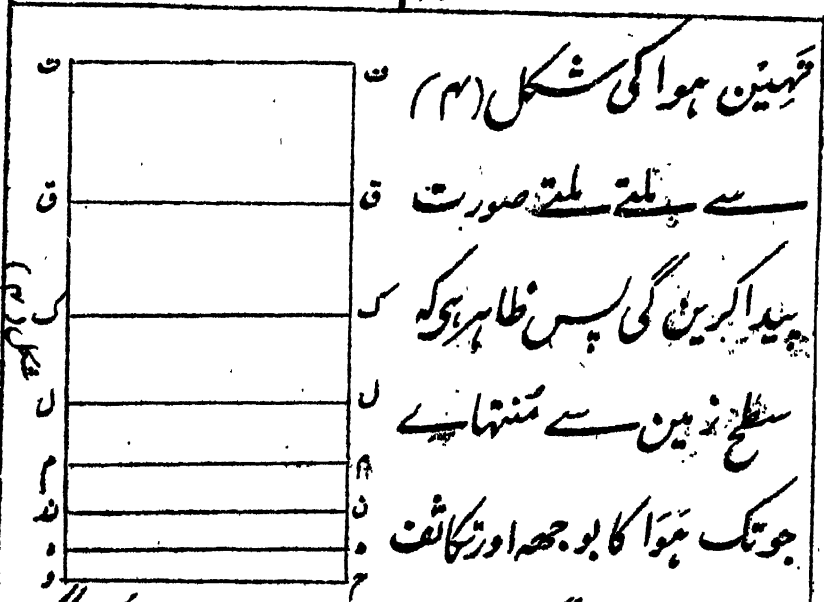 تہیین ہوا کی شکل (۴)
سے ملتے ملتے صورت
پیدا کرین گی پس ظاہر ہی کہ
سطح زمین سے مُنتہاے
جو تک ہَوَا کا بوجھہ اور تکاثف
ت ت
ق ق
ک ک
ل ل
م م
ن ن
ہ ہ
ح و
شکل (۴)